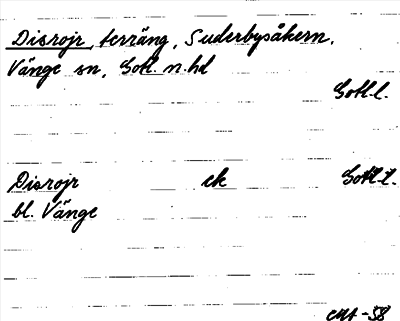 Disrojr, terräng, Suderbysåkern.
Vänge sn, Gotl. n. hd
Gotl.l.
Disrojr ek Gotl.l.
bl. Vänge
CMA -58